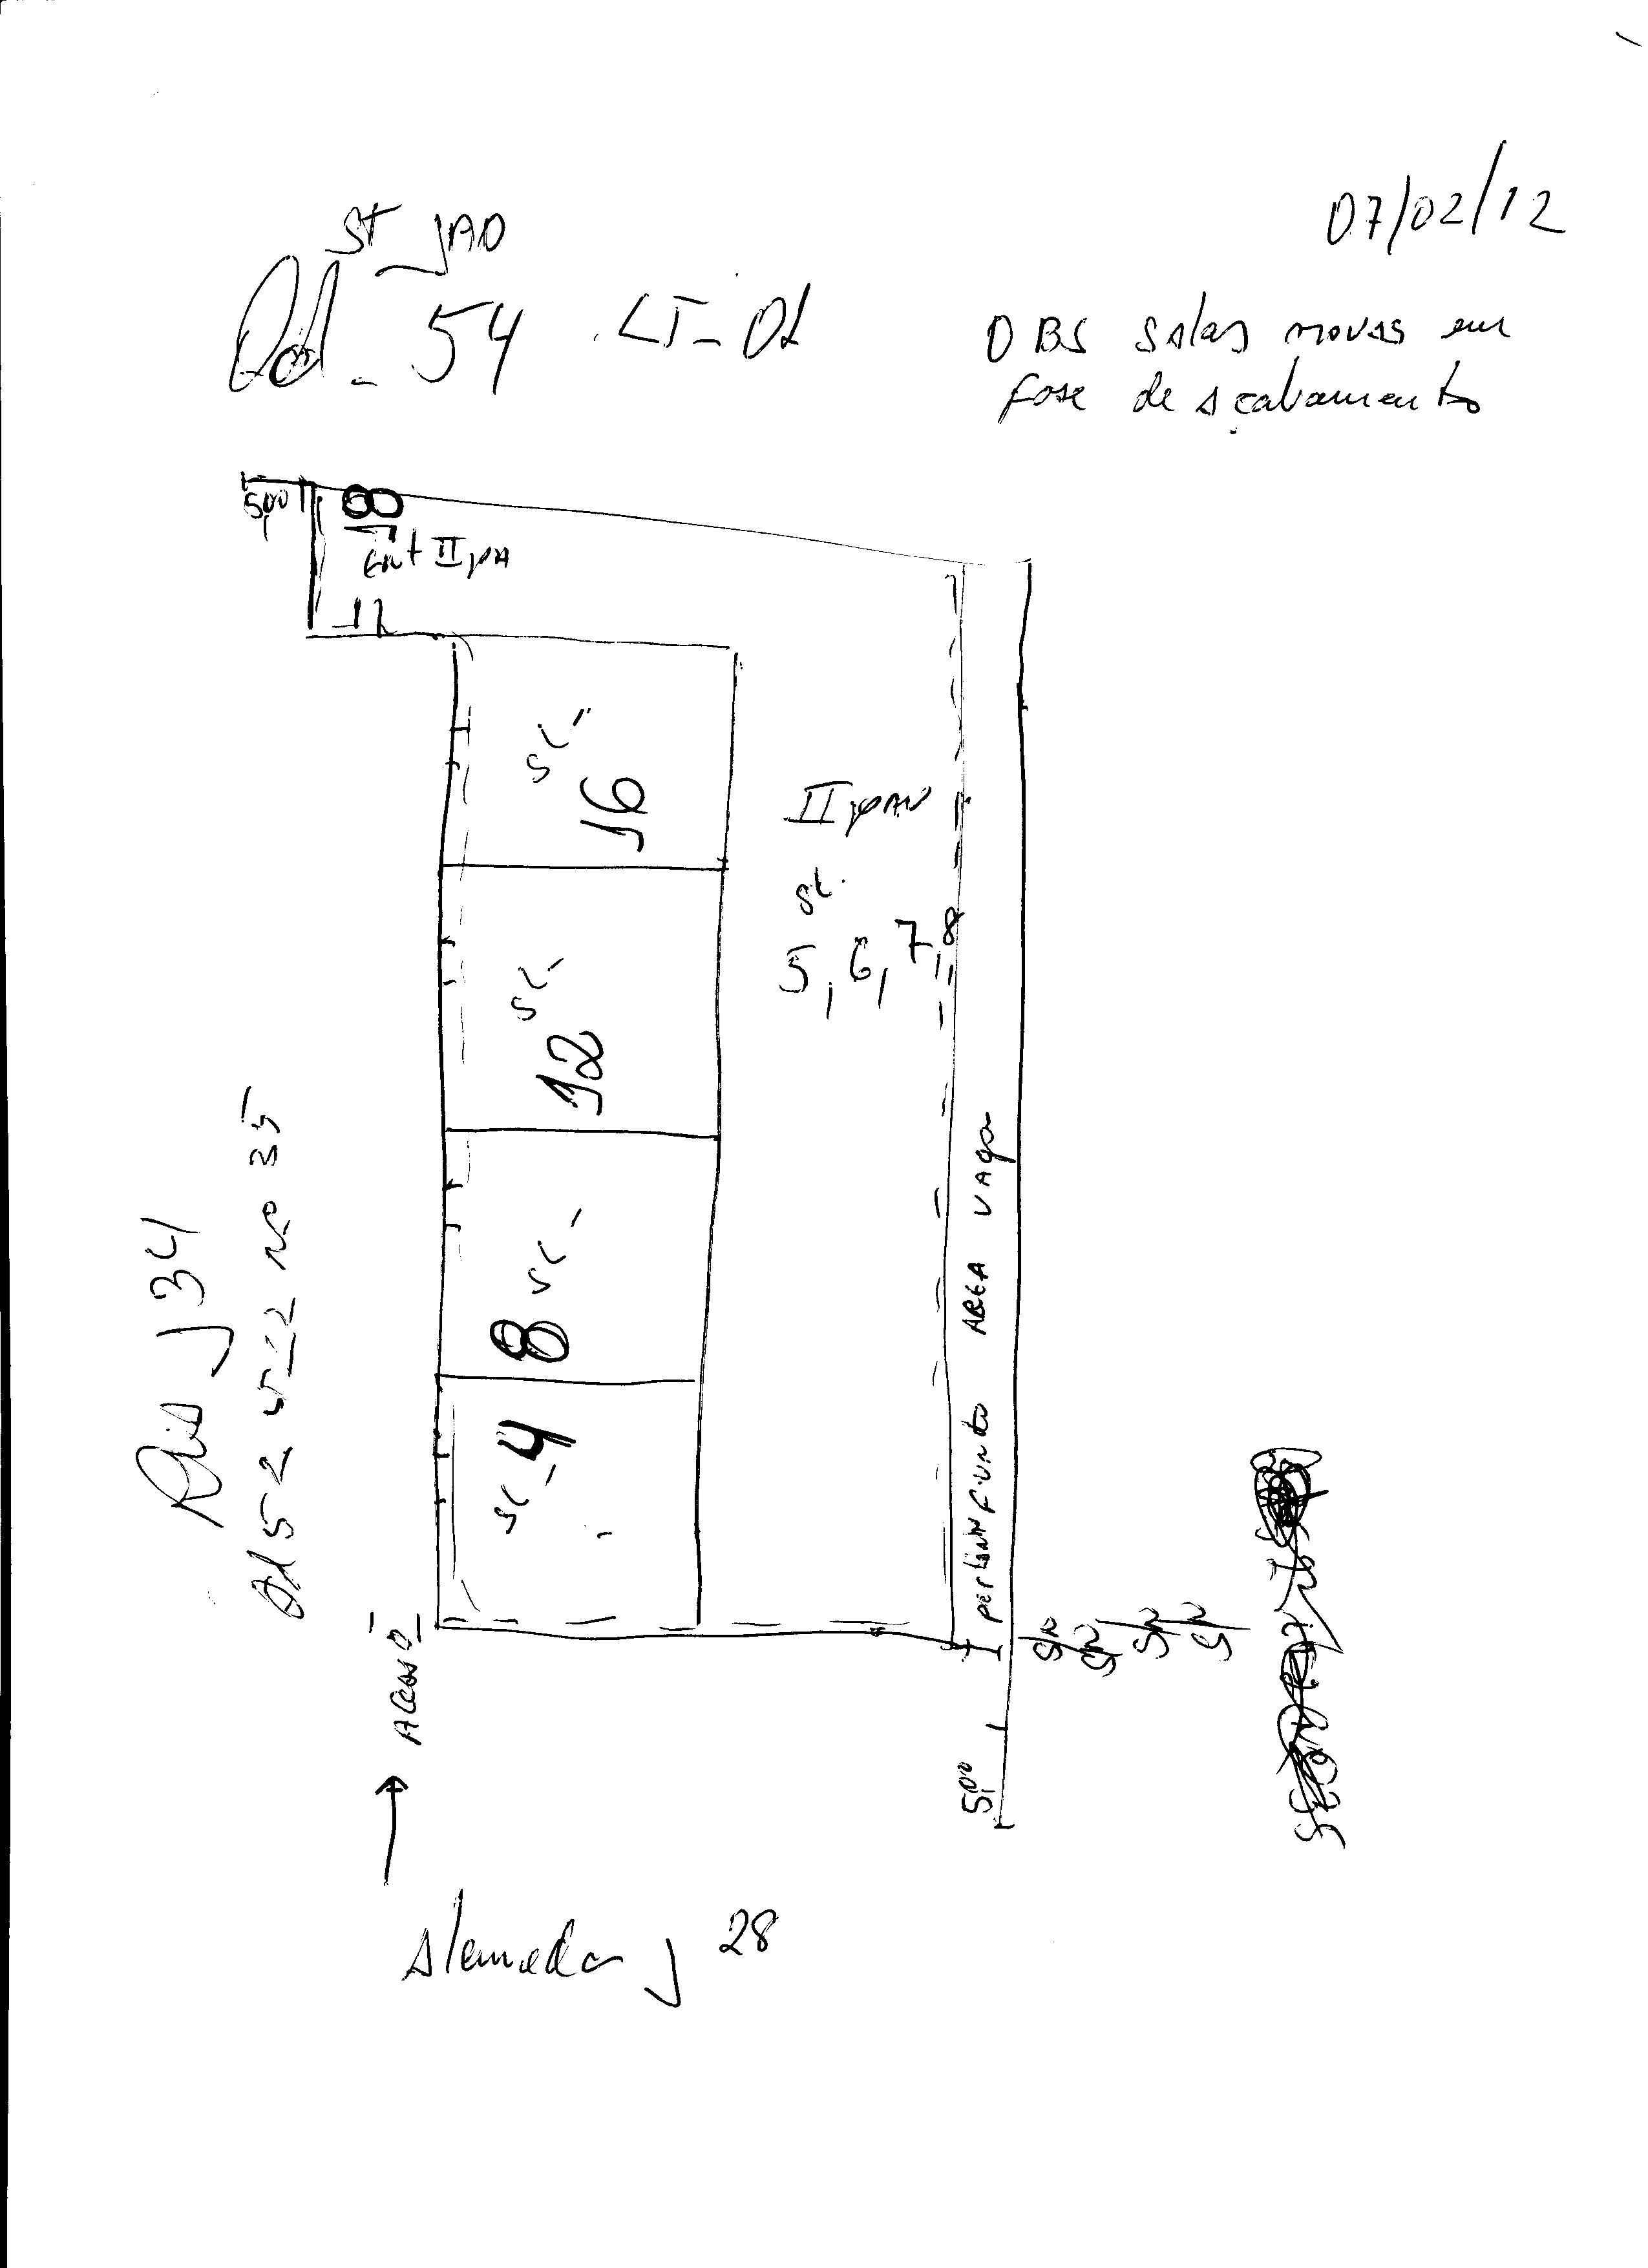 07/02/12
St JAO
Qd - 54 . LT - 01
OBS Salas novas em
fase de acabamento
5,00
8
Ent II pav
12
SL
16
II pav
SL
5, 6, 7, 8
SL
12
SL -
8
SL - 4
Rua J 34
Qd 52 LT 22 no 35
Fundo AREA VAga
Acesso
5,00
Alameda J 28